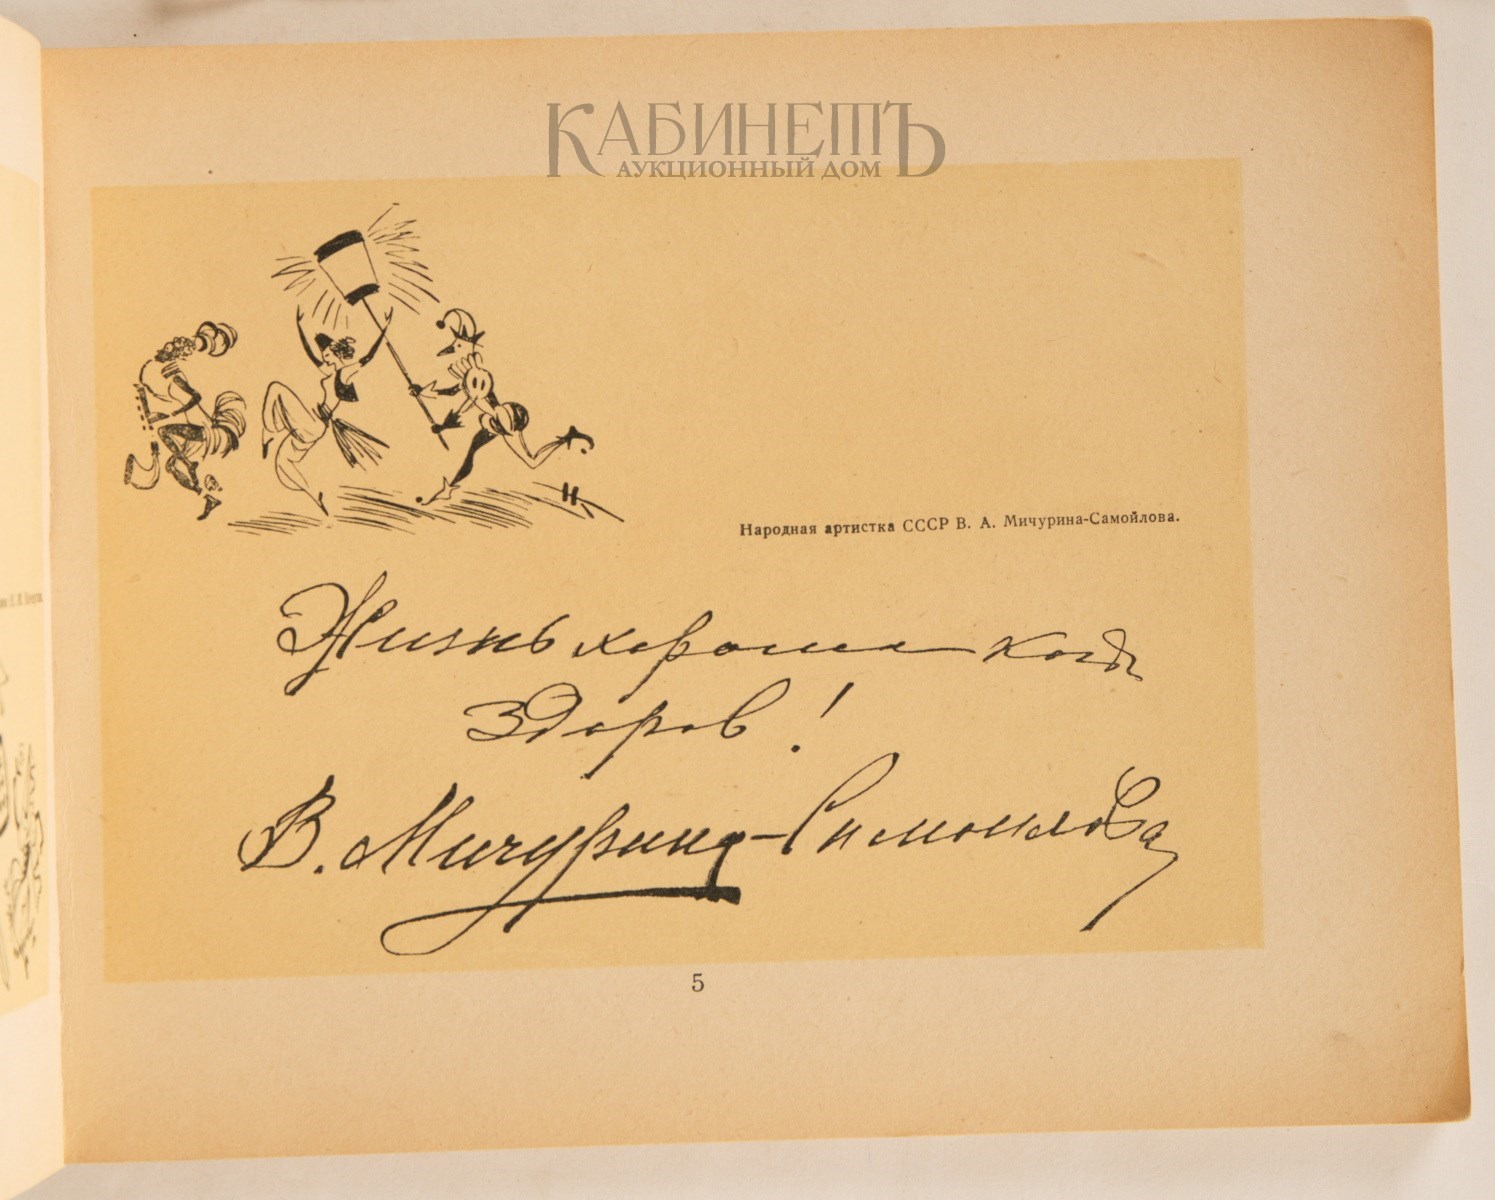 КАБИНЕТЪ
АУКЦИОННЫЙ ДОМ
Народная артистка СССР В. А. Мичурина-Самойлова.
Жизнь хороша когда
здоров!
В. Мичурина-Самойлова
5